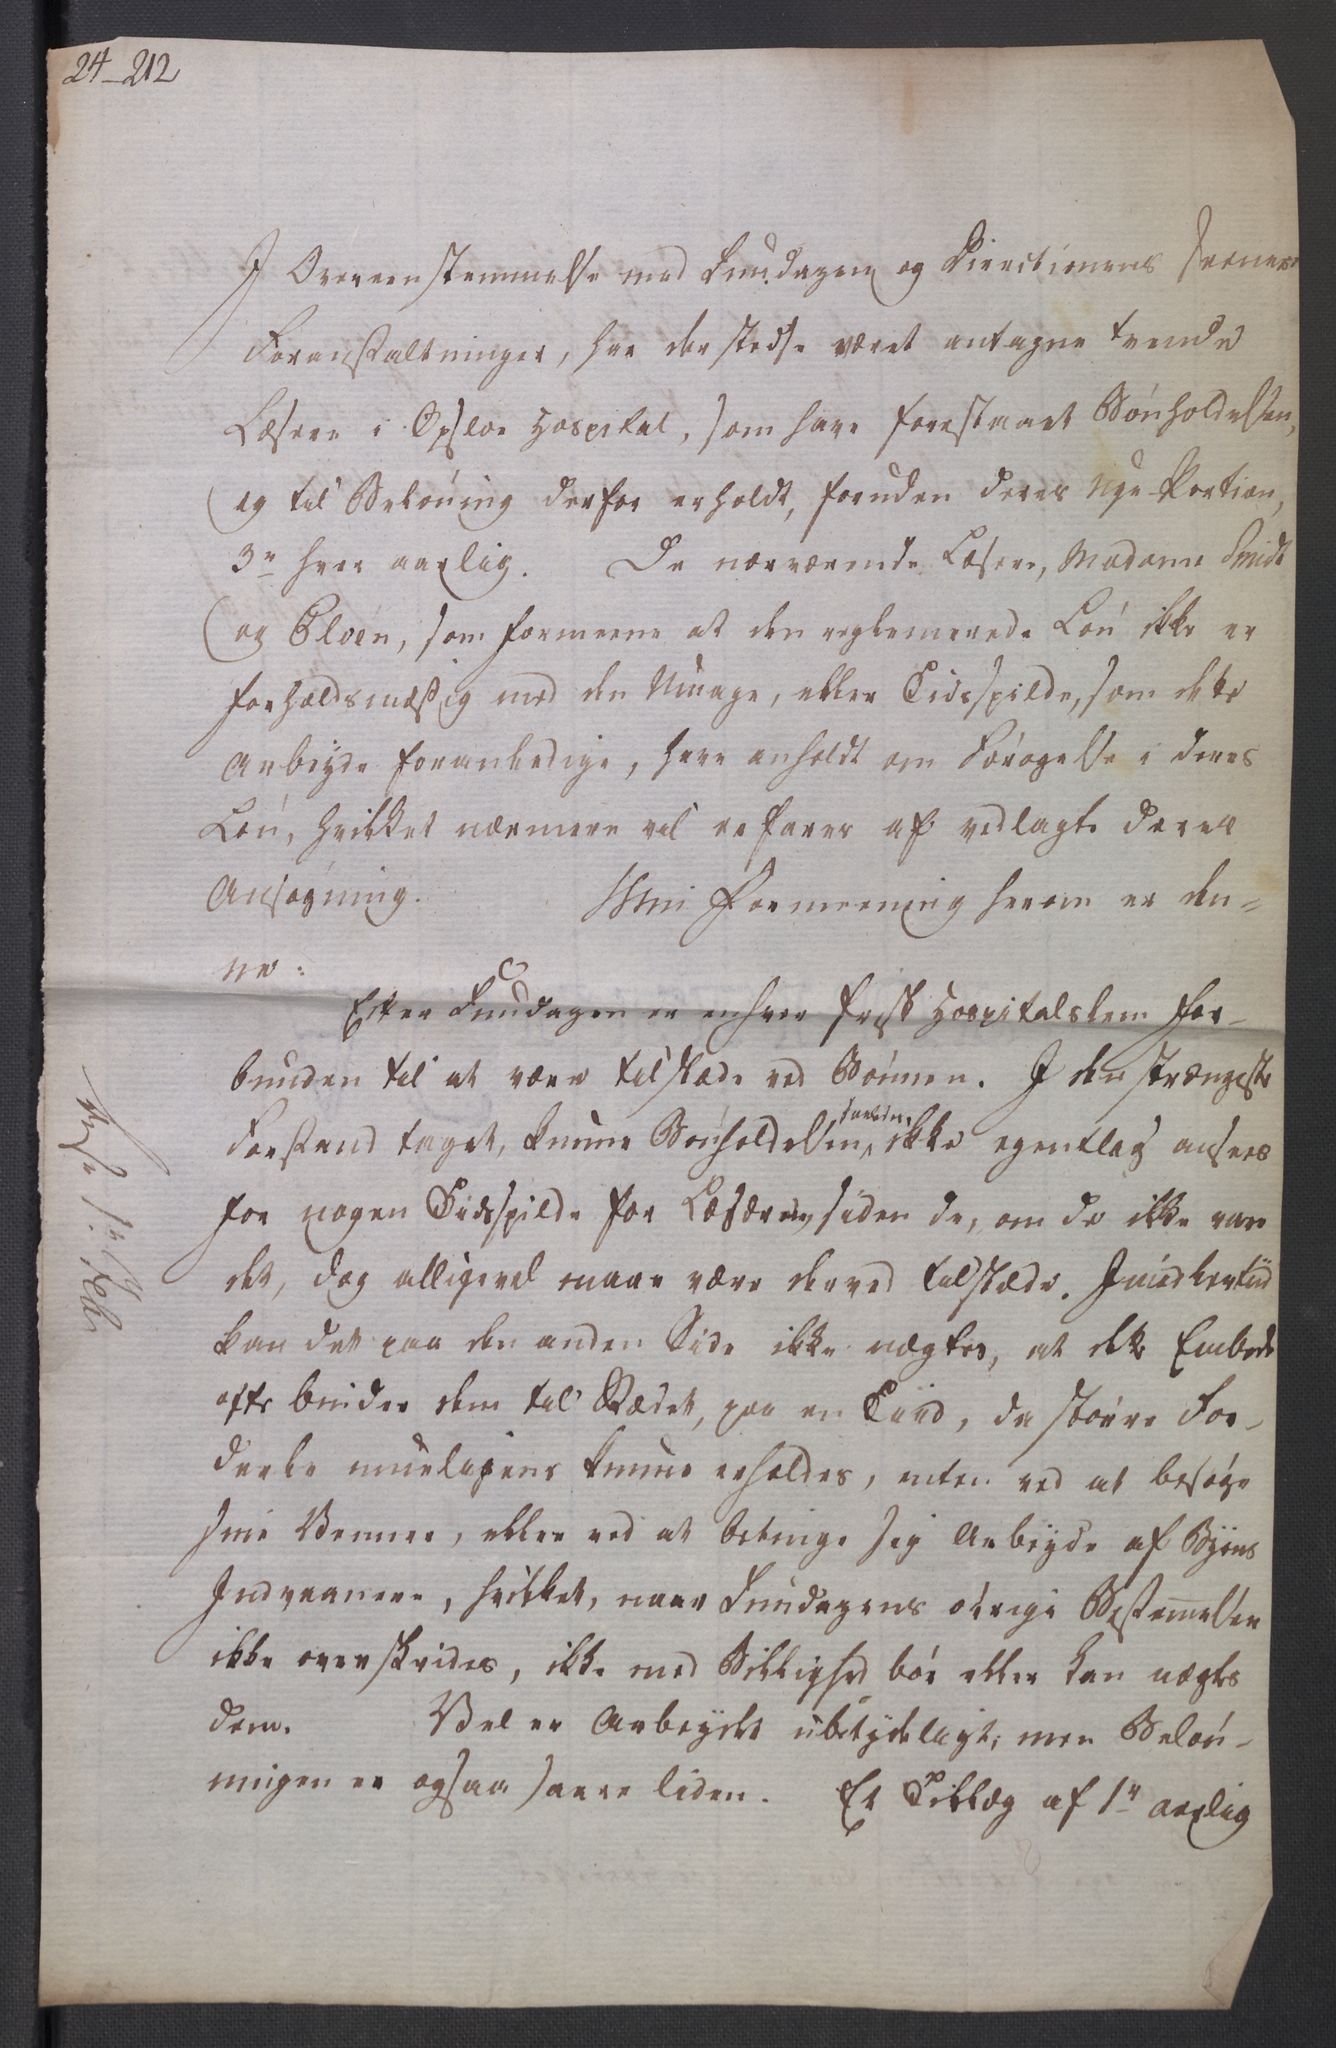 24-212
I Overeenstemmelse med Fundazen og Directionens senere
Foranstaltninger, har der stedse været antagne tvende
Læsere i Opsloe Hospital, som have forestaaet Bönholdelsen,
og til Belöning derfor erholdt, foruden deres Uge-Portion,
3r hver aarlig. De nærværende Læsere, Madame Smidt
og Elvén, som formeene at den reglementerede Lön ikke er
forholdsmæssig med den Umage, eller Tidsspilde, som dette
Arbeyde foranledige, have anholdt om Forögelse i deres
Lön, hvilket nærmere vil erfares af vedlagte deres
Ansögning. Min Formeening herom er den-
ne:
Efter Fundazen er enhver frisk Hospitalslem for-
bunden til at være tilstæde ved Bönnen. I den strængeste
Forstand taget, kunne Bönholdelsen saaledes ikke egentlig ansees
for nogen Tidsspilde for Læserne, siden de, om de ikke vare
det, dog alligevel maae være derved tilstæde. Imidlertiid
kan det paa den anden Side ikke nægtes, at dette Embede
ofte binder dem til Stædet, paa en Tiid, da större For-
deele mueligens kunne erholdes, enten ved at besöge
sine Venner, eller ved at betinge sig Arbeyde af Byens
Indvaanere, hvilket, naar Fundazens övrige Bestemmelser
ikke overskrides, ikke med Billighed bör eller kan nægtes
dem. Vel er Arbeydet ubetydeligt; men Belön-
ningen er ogsaa saare liden. Et Tillæg af 1r aarlig